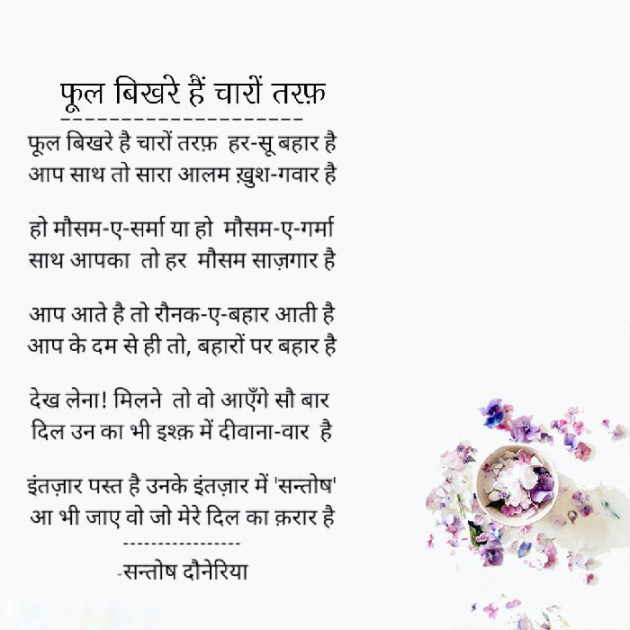 फूल बिखरे हैं चारों तरफ़
--------------------
फूल बिखरे है चारों तरफ़ हर-सू बहार है
आप साथ तो सारा आलम ख़ुश-गवार है
हो मौसम-ए-सर्मा या हो मौसम-ए-गर्मा
साथ आपका तो हर मौसम साज़गार है
आप आते है तो रौनक-ए-बहार आती है
आप के दम से ही तो, बहारों पर बहार है
देख लेना! मिलने तो वो आएँगे सौ बार
दिल उन का भी इश्क़ में दीवाना-वार है
इंतज़ार पस्त है उनके इंतज़ार में 'सन्तोष'
आ भी जाए वो जो मेरे दिल का क़रार है
-----------------
-सन्तोष दौनेरिया